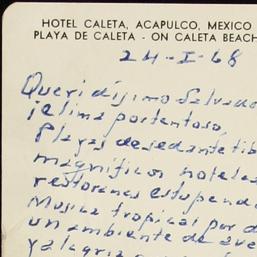 HOTEL CALETA, ACAPULCO, MEXICO
PLAYA DE CALETA - ON CALETA BEACH
24-I-68
Queridísimo Salvado
¡clima portentoso,
Playas de sedante tib
magníficos hoteles
restoranes estupendo
Musica tropical por d
un ambiente de ave
y alegría